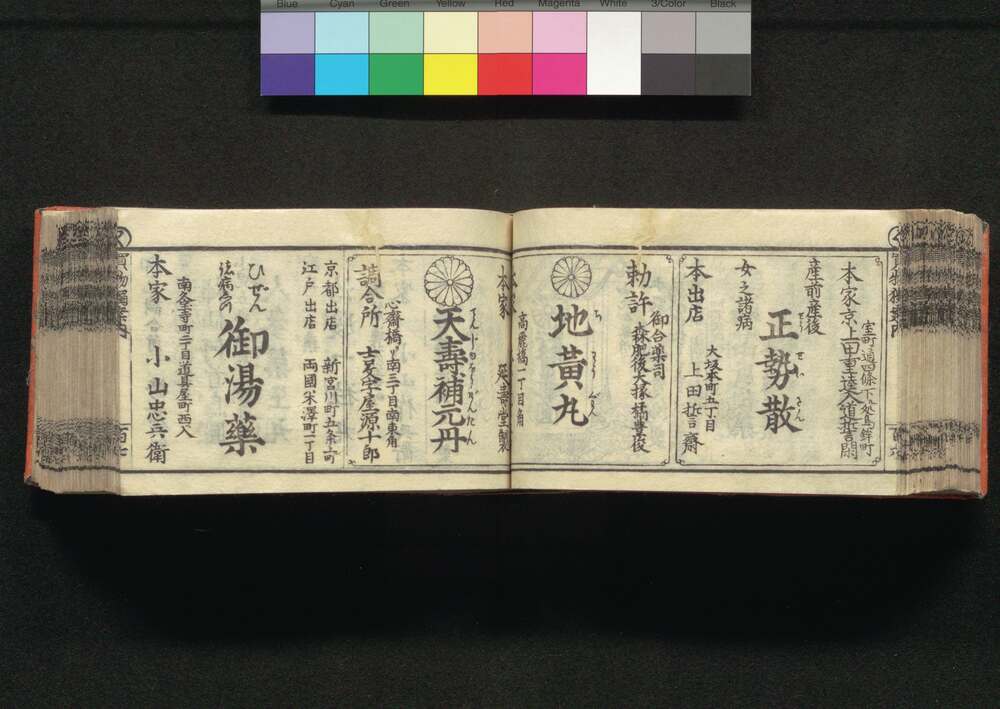 Blue Cyan Green Yellow Red Magenta White 3/Color Black
室町通四條下ル処鳥鉾町
本家京
産前産後
正勢散
せいさん
女之諸病
大坂本町五丁目
本出店
上田哲斎
御合薬司
勅許
森肥後大掾橘豊俊
地黄丸
ぢわうぐわん
高麗橋一丁目角
本家
延壽堂製
天壽補元丹
てんじゆほげんたん
心斎橋南三丁目南東角
調合所
吉文字屋源十郎
京都出店
新宮川町五条上町
江戸出店
両國米澤町一丁目
ひぜん
御湯藥
南久宝寺町三丁目道具屋町西入
本家
小山忠兵衛